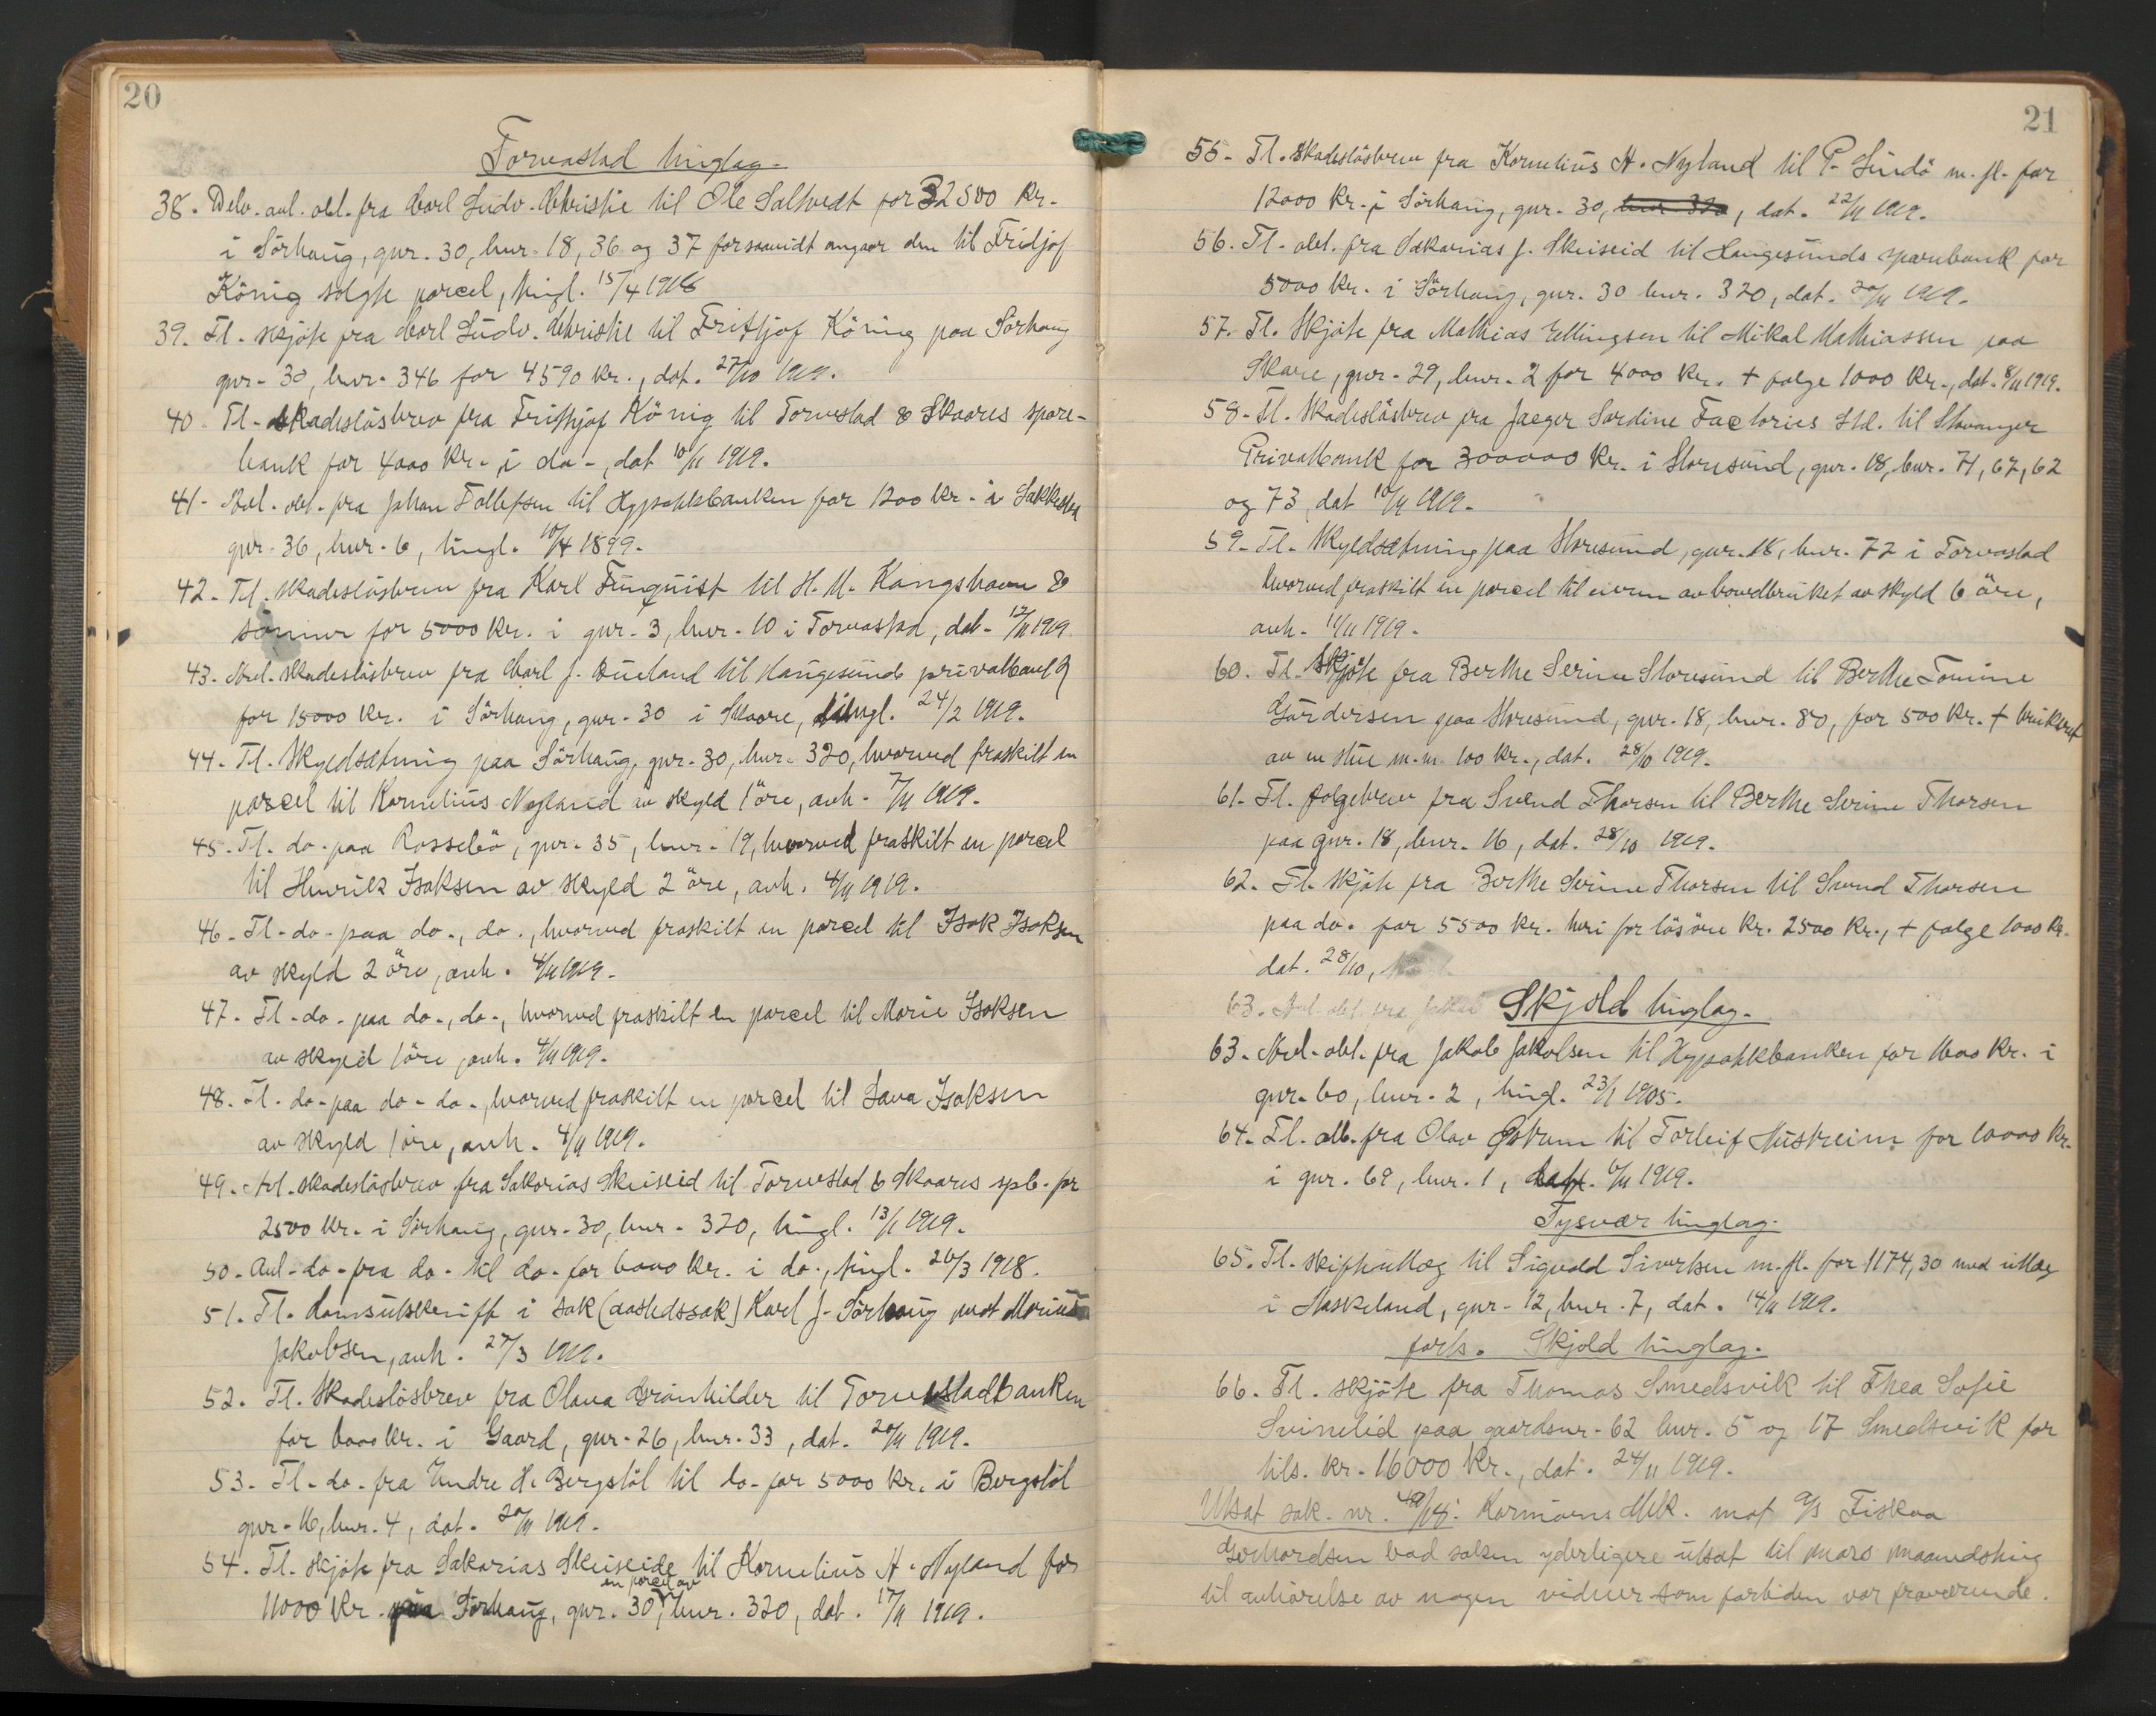 20
Torvastad tinglag.
38. Delv. avl. obl. fra Carl Ludv. Christie til Ole Saltvedt for 32500 kr.
i Sörhaug, gnr. 30, bnr. 18, 36 og 37 forsaavidt angaar den til Fridjof
König solgte parcel, tingl. 15/4 1916
39. Tl. skjöte fra Carl Ludv. Christie til Fritjof Köning paa Sörhaug
gnr. 30, bnr. 346 for 4590 kr., dat. 27/10 1919.
40. Tl. skadeslösbrev fra Frithjof König til Torvestad & Skaares spare-
bank for 4000 kr. i do., dat 10/11 1919.
41. Avl. obl. fra Johan Tollefsen til Hypothekbanken for 1200 kr. i Sakkestad
gnr. 36, bnr. 6, tingl. 10/4 1899.
42. Tl. skadeslösbrev fra Karl Finquist til H. M. Kongshavn &
sönner for 5000 kr. i gnr. 3, bnr. 10 i Torvastad, dat. 12/11 1919.
43. Avl. skadeslösbrev fra Carl J. Dueland til Haugesunds privatbank
for 15000 kr. i Sörhaug, gnr. 30 i Skaare, tingl. 24/2 1919.
44. Tl. Skyldsætning paa Sörhaug, gnr. 30, bnr. 320, hvorved fraskilt en
parcel til Kornelius Nyland av skyld 1 öre, avh. 7/11 1919.
45. Tl. do. paa Rossebö, gnr. 35, bnr. 19, hvorved fraskilt en parcel
til Henrik Isaksen av skyld 2 öre, avh. 4/11 1919.
46. Tl. do. paa do., do., hvorved fraskilt en parcel til Isak Isaksen
av skyld 2 öre, avh. 4/11 1919.
47. Tl. do. paa do., do., hvorved fraskilt en parcel til Marie Isaksen
av skyld 1 öre, avh. 4/11 1919.
48. Tl. do. paa do. do., hvorved fraskilt en parcel til Lava Isaksen
av skyld 1 öre, avh. 4/11 1919.
49. Avl. skadeslösbrev fra Sakarias Skeiseid til Torvestad & Skaares spb. for
2500 kr. i Sörhaug, gnr. 30, bnr. 320, tingl. 13/1 1919.
50. Avl. do. fra do. til do. for 6000 kr. i do., tingl. 26/3 1918.
51. Tl. domsutskrift i sak (aastedssak) Karl J. Sörhaug mot Marius
Jakobsen, avh. 27/3 1919.
52. Tl. Skadeslösbrev fra Olava Grönhilder til Torvestadbanken
for 6000 kr. i Gaard, gnr. 26, bnr. 33, dat. 20/11 1919.
53. Tl. do. fra Endre H. Bergstöl til do. for 5000 kr. i Bergstöl
gnr. 16, bnr. 4, dat. 20/11 1919.
54. Tl. skjöte fra Sakarias Skeiseide til Kornelius H. Nyland for
en parcel av
11000 kr. paa Sörhaug, gnr. 30, bnr. 320, dat. 17/11 1919.
21
55. Tl. skadeslösbrev fra Kornelius H. Nyland til P. Lindö m. fl. for
12000 kr. i Sörhaug, gnr. 30, bnr. 320, dat. 22/11 1919.
56. Tl. obl. fra Sakarias J. Skeiseid til Haugesunds sparebank for
5000 kr. i Sörhaug, gnr. 30 bnr. 320, dat. 20/11 1919.
57. Tl. Skjöte fra Mathias Ellingsen til Mikal Mathiassen paa
Skare, gnr. 29, bnr. 2 for 4000 kr. + folge 1000 kr., dat. 8/11 1919.
58. Tl. Skadeslösbrev fra Jaeger Sardine Factories Ltd. til Stavanger
Privatbank for 300000 kr. i Storesund, gnr. 18, bnr. 71, 67, 62
og 73, dat 10/11 1919.
59. Tl. Skyldsætning paa Storesund, gnr. 18, bnr. 72 i Torvastad
hvorved fraskilt en parcel til eieren av hovedbruket av skyld 6 öre,
avh. 11/11 1919.
60. Tl. Skjöte fra Berthe Serine Storesund til Berthe Tomine
Gundersen paa Storesund, gnr. 18, bnr. 80, for 500 kr. + bruksret
av en stue m. m. 100 kr., dat. 28/10 1919.
61. Tl. folgebrev fra Svend Thorsen til Berthe Serine Thorsen
paa gnr. 18, bnr. 16, dat. 28/10 1919.
62. Tl. skjöte fra Berthe Serine Thorsen til Svend Thorsen
paa do. for 5500 kr. heri for lösöre kr. 2500 kr., + folge 1000 kr.
dat. 28/10,
63. Avl. obl. fra Jakob Skjold tinglag.
63. Avl. obl. fra Jakob Jakobsen til Hypothekbanken for 1600 kr. i
gnr. 60, bnr. 2, tingl. 23/1 1905.
64. Tl. obl. fra Olav Østrem til Torleif Austreim for 10000 kr.
i gnr. 69, bnr. 1, dat. 6/11 1919.
Tysvær tinglag.
65. Tl. skifteutlæg til Sigvald Sivertsen m. fl. for 1174,30 med utlæg
i Aaskeland, gnr. 12, bnr. 7, dat. 14/11 1919.
forts. Skjold tinglag.
66. Tl. skjöte fra Thomas Smedsvik til Thea Sofie
Svinelid paa gaardsnr. 62 bnr. 5 og 17 Smedsvik for
tils. kr. 16000 kr., dat. 24/11 1919.
Utsat sak. nr. 49/14: Karmöens Mek. mot a/s Fiskaa
Gerhardsen bad saken yderligere utsat til mars maanedsting
til avhörelse av nogen vidner som fortiden var fraværende.